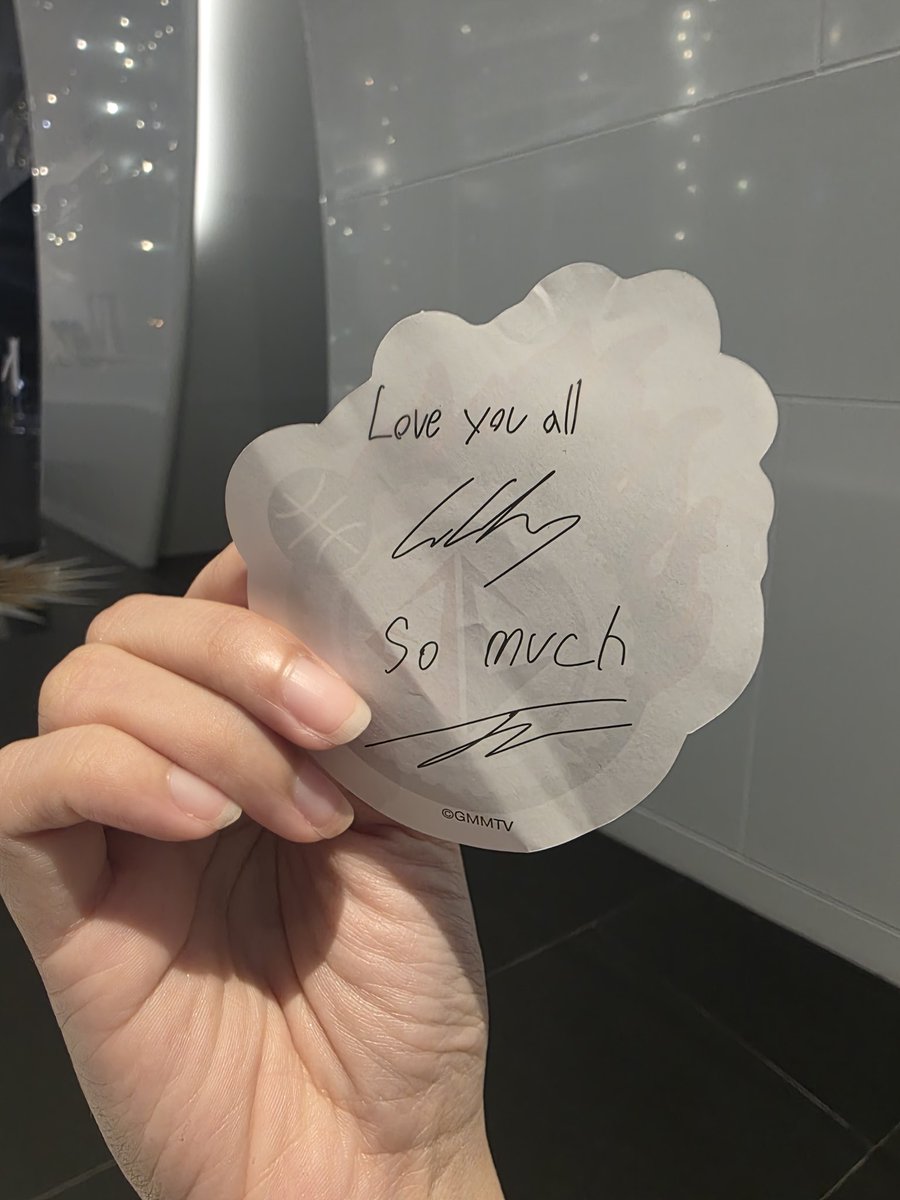 Love you all
so much
©GMMTV